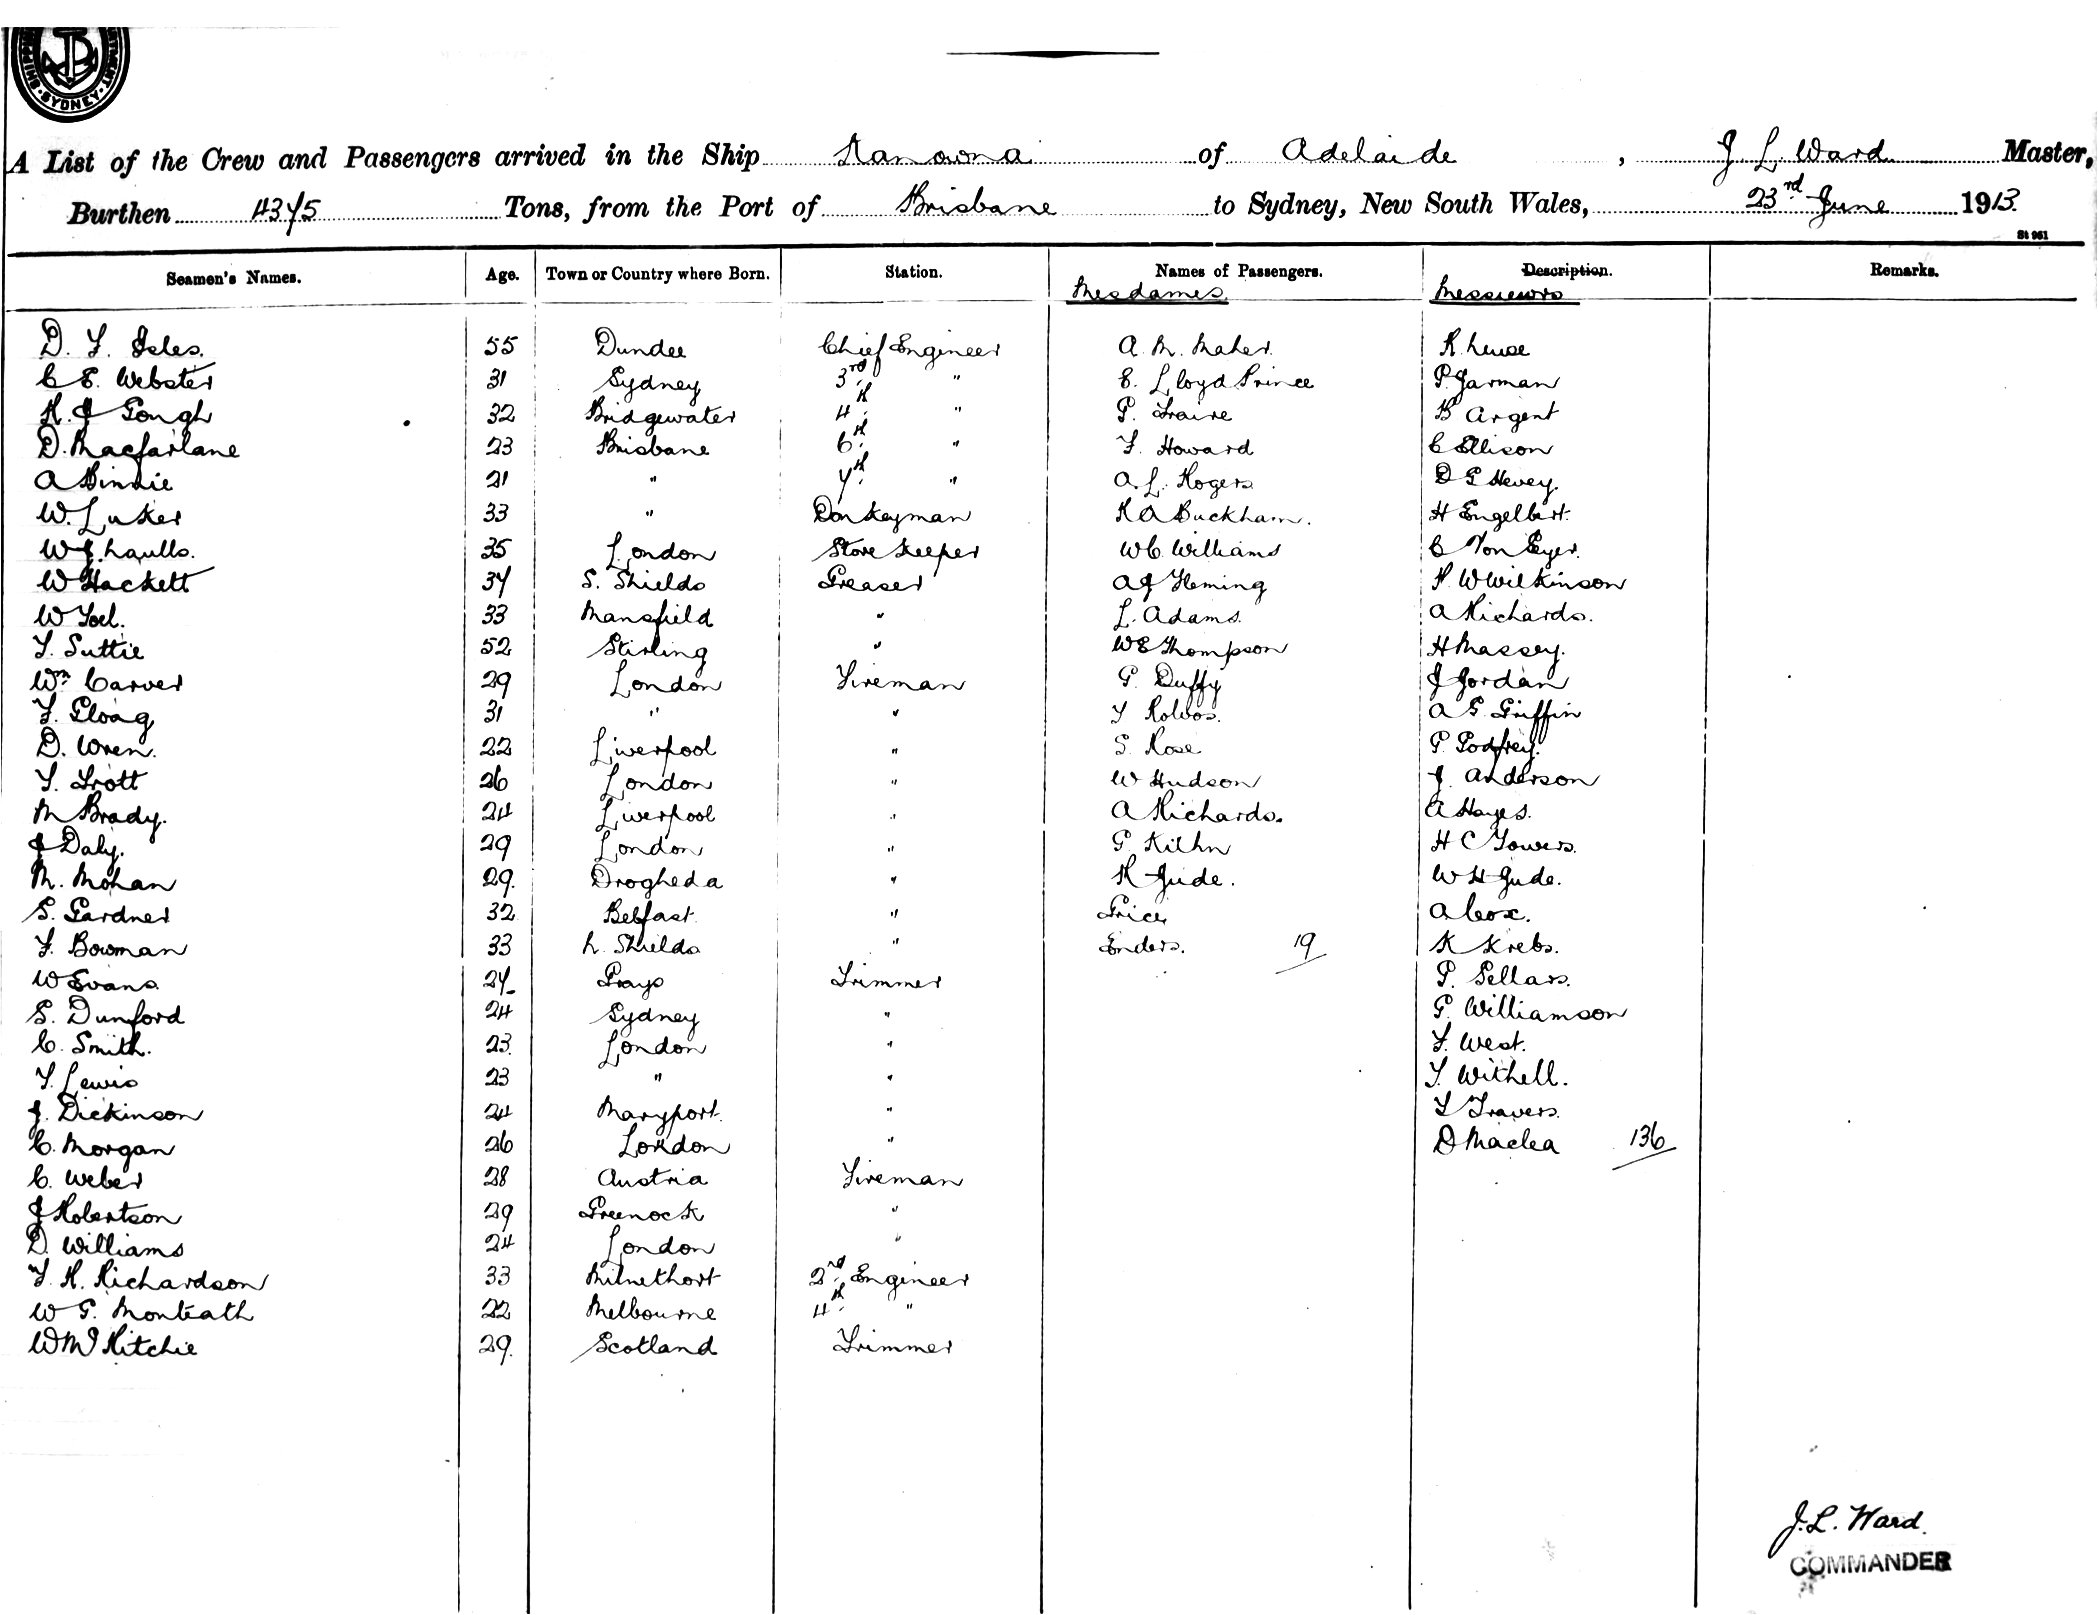 SHIPPING · SYDNEY
A List of the Crew and Passengers arrived in the Ship Kanowna of Adelaide, J. L. Ward Master,
Burthen 4375 Tons, from the Port of Brisbane to Sydney, New South Wales, 23rd June 1913.
St 961
Seamen's Names. Age. Town or Country where Born. Station. Names of Passengers. Description. Remarks.
Mesdames Messieurs
D. F. Isles. 55 Dundee Chief Engineer A. M. Maher. R.
C E. Webster 31 Sydney 3rd " E. Lloyd Prince P. Jarman
H. J Gough 32 Bridgewater 4th " G. Fraire B Argent
D. Macfarlane 23 Brisbane 6th " F. Howard C Ellison
A Binnie 21 " 7th " A. L. Rogers D G Hevey.
W. Luker 33 " Donkeyman R A Buckham. H Engelbert.
W J. 35 London Store Keeper W C. Williams C Von Eyer.
W Hackett 37 S. Shields Greaser A J Fleming H. W Wilkinson
W 33 Mansfield " L. Adams. A Richards.
F. Suttie 52 Stirling " W E Thompson H Massey.
Wm Carver 29 London Fireman G. Duffy J Jordan
F. Gloag 31 " " F A G. Griffin
D. Wren. 22 Liverpool " S. Rose G. Godfrey.
F. Trott 26 London " W Hudson J. Anderson
M Brady. 24 Liverpool " A Richards. A Hayes.
J Daly. 29 London " G. Kilhn H C Towers.
M. Mohan 29. Drogheda " R Jude. W H Jude.
S. Gardner 32 Belfast. " Price A Cox.
F. Bowman 33 N. Shields " Enders. 19 K Krebs.
W Evans. 27 Grays Trimmer P. Sellars.
S. Dunford 24 Sydney " G. Williamson
C. Smith. 23. London " F. West.
F. Lewis 23 " " T. Withell.
J. Dickinson 24 Maryport. " T Travers.
C. Morgan 26 London " D Maclea 136
C. Weber 28 Austria Fireman
J Robertson 29 Greenock "
D. Williams 24 London "
F. H. Richardson 33 Milnethort 2nd Engineer
W G. Monteath 22 Melbourne 4th "
W Ritchie 29. Scotland Trimmer
J. L. Ward.
COMMANDER